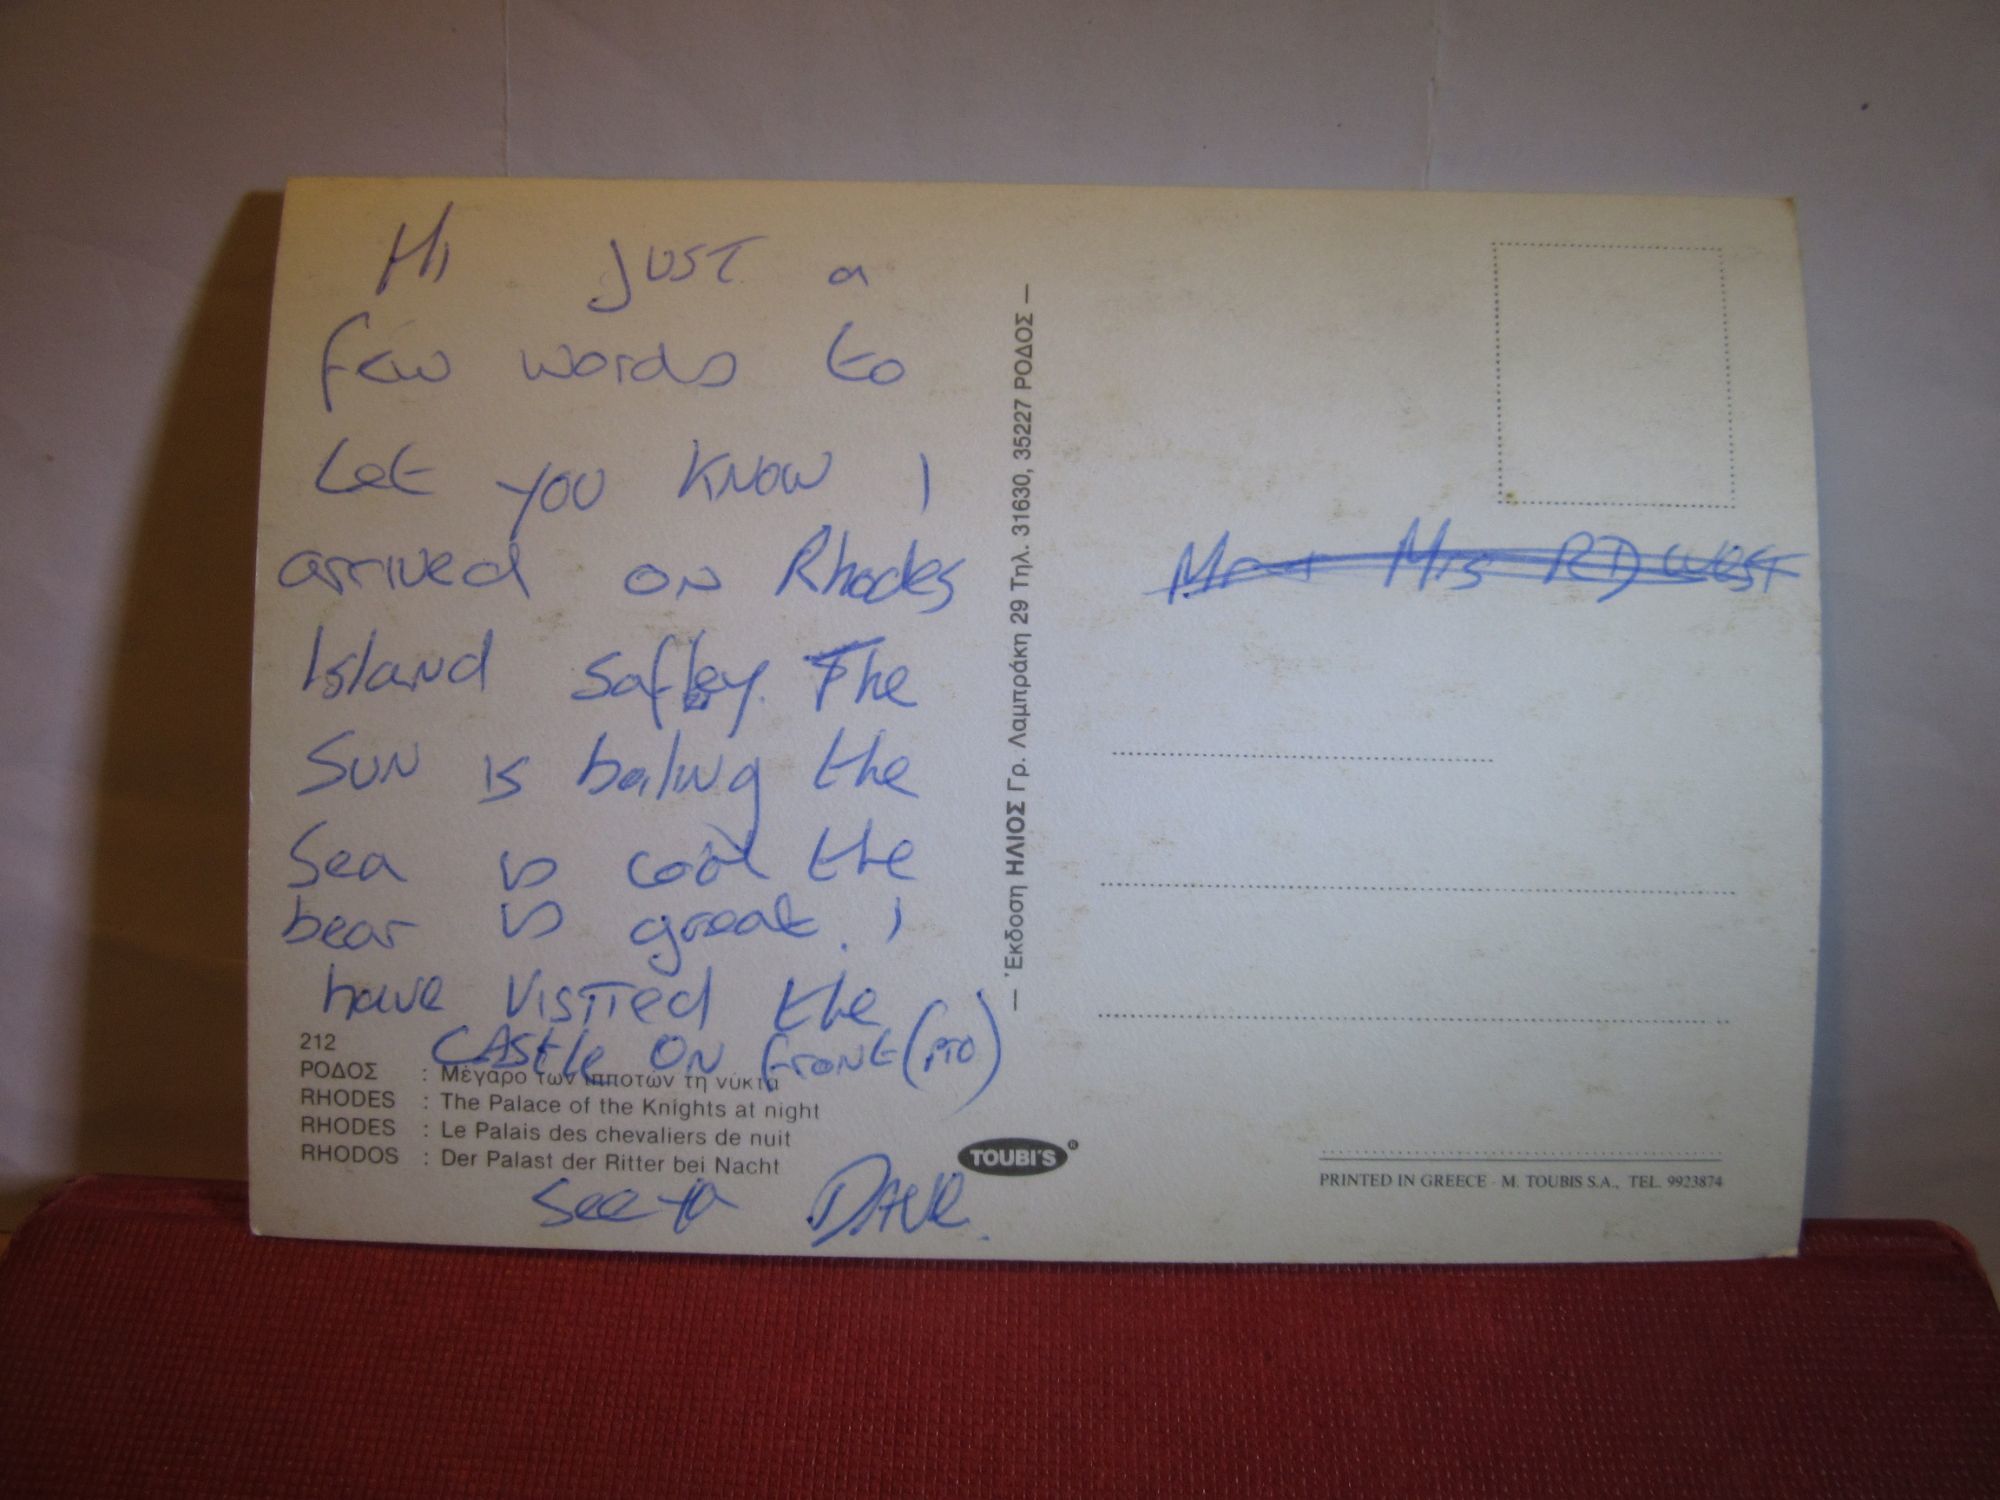 Hi just a
few words to
Let you know I
arrived on Rhodes
Island safley. The
Sun is boiling the
Sea is cool the
bear is great. I
have visited the
CAStle ON front (PTO)
212
ΡΟΔΟΣ : Μέγαρο των ιπποτών τη νύκτα
RHODES : The Palace of the Knights at night
RHODES : Le Palais des chevaliers de nuit
RHODOS : Der Palast der Ritter bei Nacht
See ya DAVE.
— Έκδοση ΗΛΙΟΣ Γρ. Λαμπράκη 29 Τηλ. 31630, 35227 ΡΟΔΟΣ —
TOUBI'S ®
Mr + Mrs RD West
PRINTED IN GREECE - M. TOUBIS S.A., TEL. 9923874